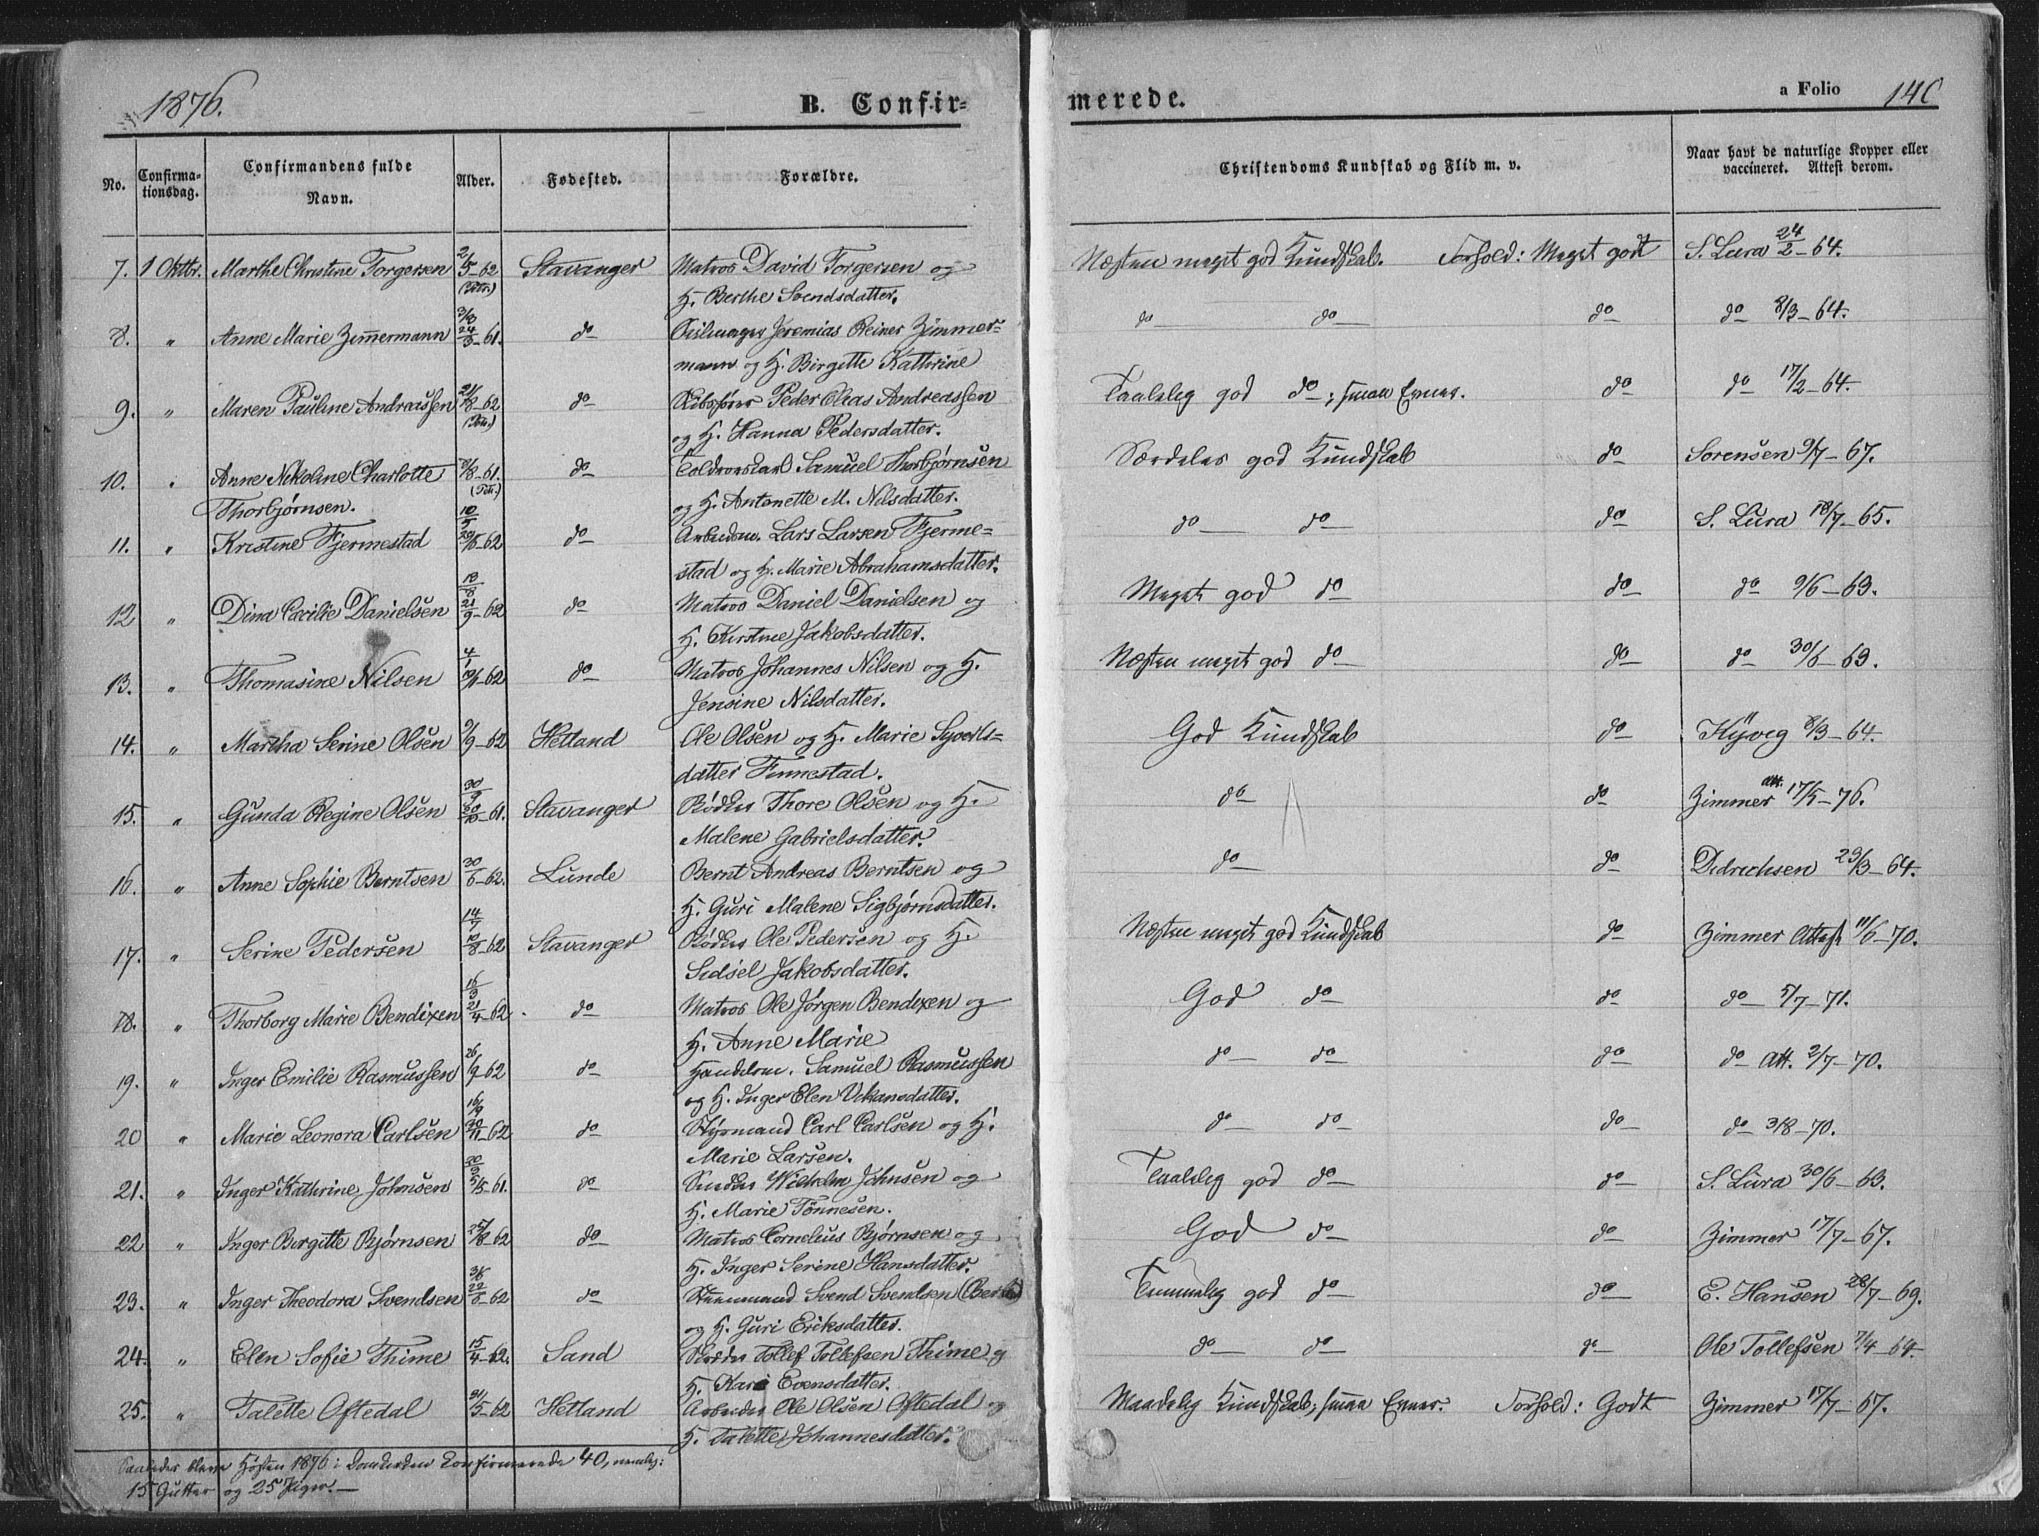 1876. B. Confir- merede. a Folio 140
No. Confirma-tionsdag. Confirmandens fulde Navn. Alder. Fødested. Forældre. Christendoms Kundskab og Flid m. v. Naar havt de naturlige Kopper eller vaccineret. Attest derom.
7. 1 Oktbr. Marthe Christine Torgersen 2/5-62 Stavanger Matros David Torgersen og Næsten meget god Kundskab. Forhold: Meget godt S. Lura 24/2-64.
(Petr.) H. Berthe Svendsdatter.
8. " Anne Marie Zimmermann 24/3-61. do Jeremias Reiner Zimmer= do do do do 8/3-64.
mann og H. Birgitte Kathrine
9. " Maren Pauline Andreassen 21/8-62 do Skibsfører Peder Elias Andreassen Taalelig god do; smaa Evner. do do 17/2-64.
(Petr.) og H. Hanna Pedersdatter.
10. " Anne Nikoline Charlotte 31/8-61. do Toldroerskarl Samuel Thorbjørnsen Særdeles god Kundskab do Sørensen 9/7-67.
Thorbjørnsen. (Petr.) og H. Antonette M. Nilsdatter.
11. " Kristine Fjermestad 10/5 20/5-62 do Arbeidsm. Lars Larsen Fjerme= do do do S. Lura 18/7-65.
stad og H. Marie Abrahamsdatter.
12 " Dina Cecilie Danielsen 18/8 21/9-62 do Matros Daniel Danielsen og Meget god do do do 9/6-63.
H. Kirstine Jakobsdatter.
13. " Thomasine Nilsen 4/1 10/1-62 do Matros Johannes Nilsen og H. Næsten meget god do do do 30/6-63.
Jensine Nilsdatter.
14. " Martha Serine Olsen 9/9-62 Hetland Ole Olsen og H. Marie Syverts= God Kundskab do Kyveg 8/3-64.
datter Finnestad.
15. " Gunda Regine Olsen 30/9 20/10-61. Stavanger Bødker Thore Olsen og H. do do Zimmer att. 17/5-76.
Malene Gabrielsdatter.
16. " Anne Sophie Berntsen 30/6-62. Lunde Bernt Andreas Berntsen og do do Didrichsen 23/3-64.
H. Guri Malene Sigbjørnsdatter.
17. " Serine Pedersen 14/7 10/8-62 Stavanger Bødker Ole Pedersen og H. Næsten meget god Kundskab do Zimmer Attest 11/6-70.
Sidsel Jakobsdatter.
18. " Thorborg Marie Bendixen 16/3 21/4-62. do Matros Ole Jørgen Bendixen og God do do do 5/7-71.
H. Anne Marie
19. " Inger Emilie Rasmussen 26/9-62 do Handelsm. Samuel Rasmussen do do do do Att. 2/7-70.
og H. Inger Elen
20 " Marie Leonora Carlsen 16/9 30/11-62 do Styrmand Carl Carlsen og H. do do do do 3/8-70.
Marie Larsen.
21. " Inger Kathrine Johnsen 5/5-61. do Snedker Wilhelm Johnsen og Taalelig god do do S. Lura 30/6-63.
H. Marie Tønnesen.
22 " Inger Bergitte Bjørnsen 25/8-62 do Matros Cornelius Bjørnsen og God do do Zimmer 17/7-67.
H. Inger Serine Hansdatter.
23. " Inger Theodora Svendsen 3/6 22/6-62 do Svend Svendsen Temmelig god do do E. Hansen 28/7-69.
og H. Guri Eriksdatter.
24. " Elen Sofie Thime 15/4-62. Sand Tollef Tollefsen Thime og do do do Ole Tollefsen 7/4-64.
H. Kari Evensdatter.
25. " Talette Oftedal 21/5-62 Hetland Arbeider Ole Olsen Oftedal og Maadelig Kundskab; smaa Evner. Forhold: Godt Zimmer 17/7-67.
H. Talette Johannesdatter.
Saaledes bleve Høsten 1876 i Domkirken Konfirmerede 40, nemlig:
15 Gutter og 25 Piger.